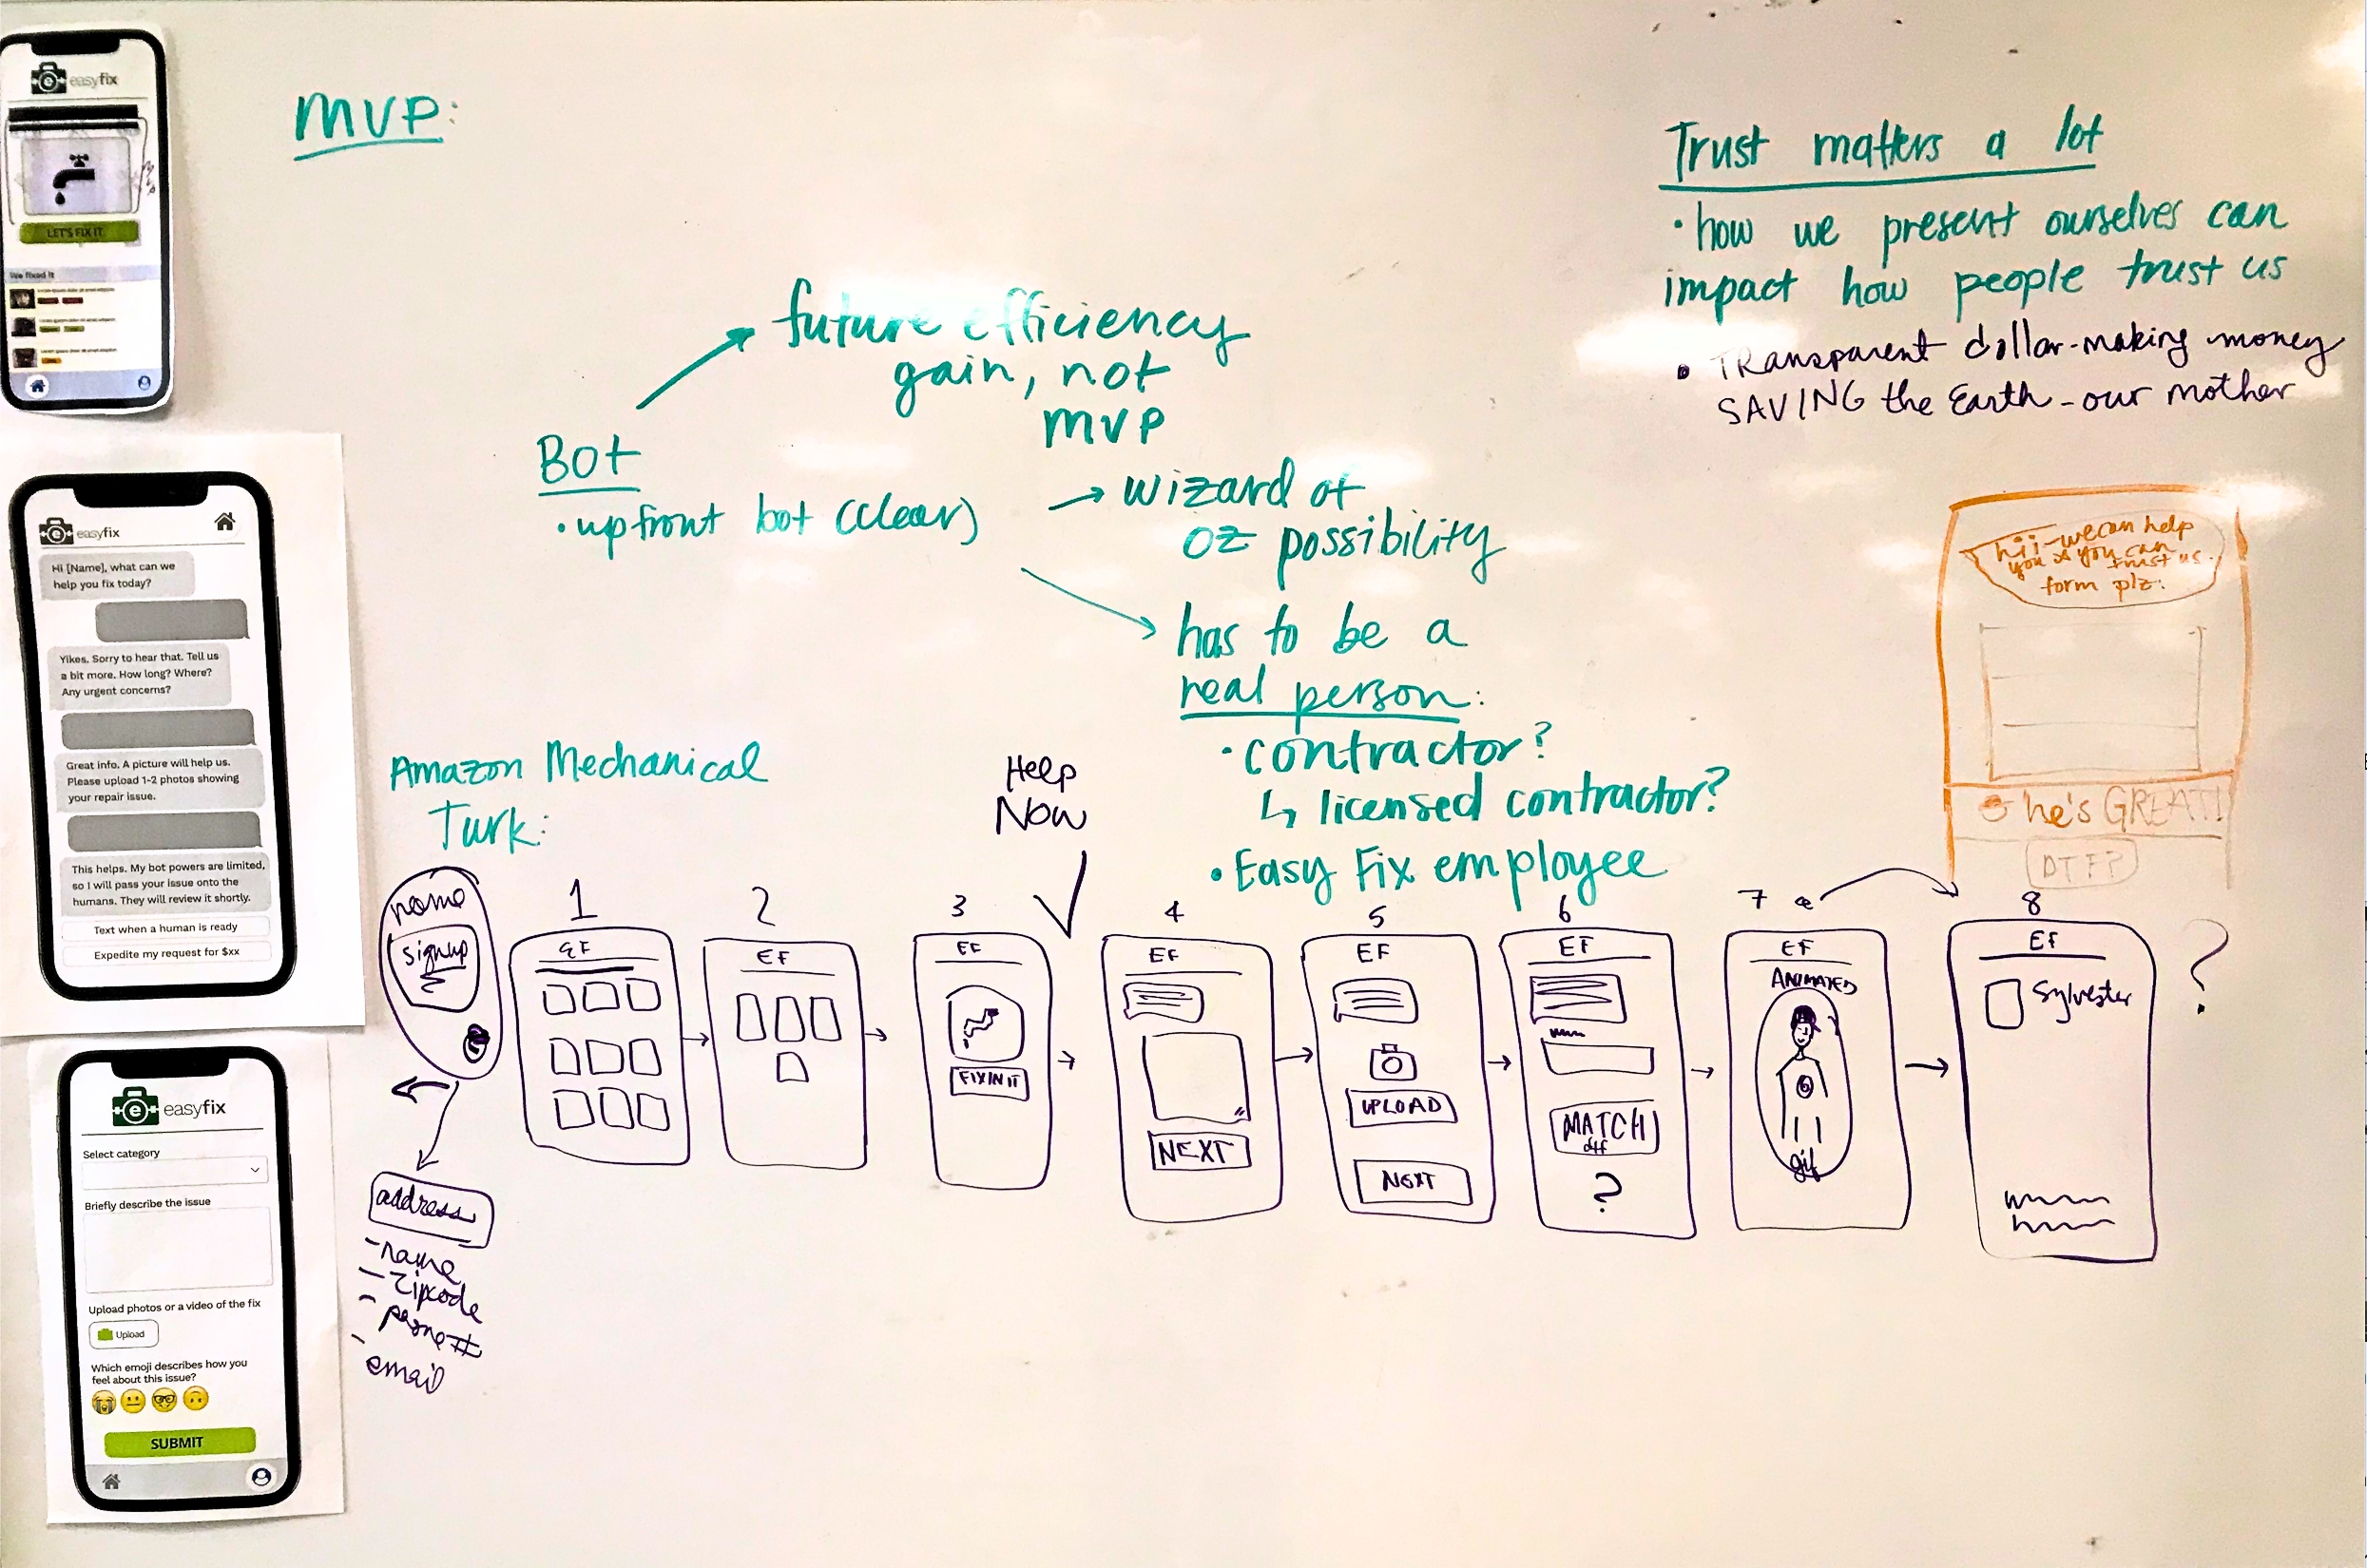 easyfix
LET'S FIX IT
We fixed it
easyfix
Hi [Name], what can we
help you fix today?
Yikes. Sorry to hear that. Tell us
a bit more. How long? Where?
Any urgent concerns?
Great info. A picture will help us.
Please upload 1-2 photos showing
your repair issue.
This helps. My bot powers are limited,
so I will pass your issue onto the
humans. They will review it shortly.
Text when a human is ready
Expedite my request for $xx
easyfix
Select category
Briefly describe the issue
Upload photos or a video of the fix
Upload
Which emoji describes how you
feel about this issue?
SUBMIT
MVP:
future efficiency
gain, not
MVP
Bot
• upfront bot (clear)
→ wizard of
oz possibility
has to be a
real person:
• contractor?
↳ licensed contractor?
• Easy Fix employee
Trust matters a lot
• how we present ourselves can
impact how people trust us
• TRansparent dollar-making money
SAVING the Earth - our mother
hii - we can help
you & you can
trust us.
form plz.
he's GREAT!
DTF?
Amazon Mechanical
Turk:
Help
Now
signup
address
- name
- zipcode
- phone #
- email
1
EF
2
EF
3
EF
FIXIN IT
4
EF
NEXT
5
EF
UPLOAD
NEXT
6
EF
MATCH
dtf
?
7
EF
ANIMATED
gif
8
EF
Sylvester
?